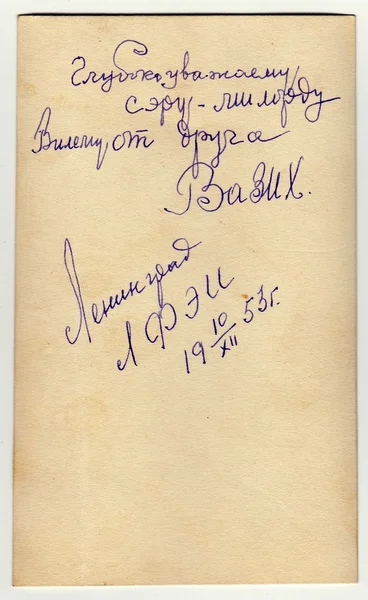 Глубокоуважаему
сэру-милорду
Вилему от друга
ВаЗИХ.
Ленинград
ЛФЭИ
19 10/XII 53г.